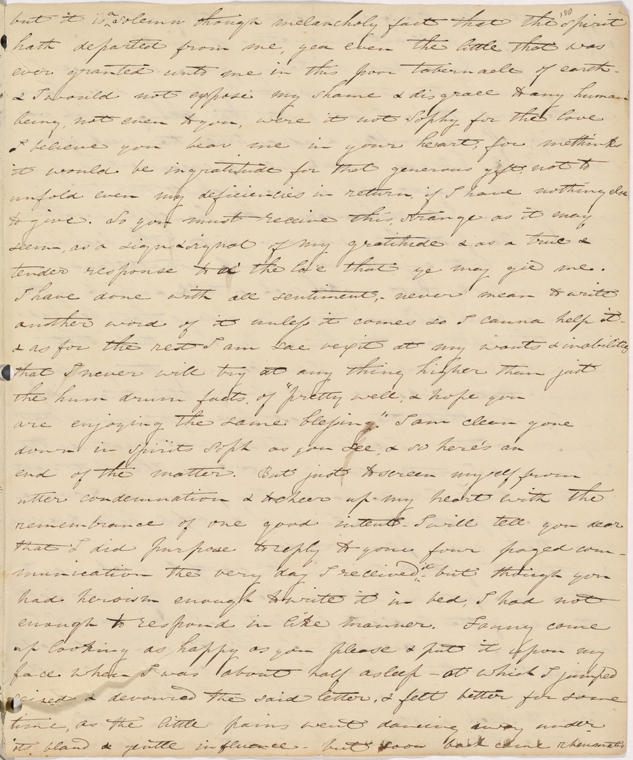 180
but it is a solemn though melancholy fact that the spirit
hath departed from me, yea even the little that was
ever granted unto me in this poor tabernacle of earth -
& I would not expose my shame & disgrace to any human
being, not even to you, were it not Sophy for the love
I believe you bear me in your heart, for methinks
it would be ingratitude for that generous gift, not to
unfold even my deficiencies in return, if I have nothing else
to give. So you must receive this, strange as it may
seem, as a sign & signal of my gratitude & as a true &
tender response to a' the love that ye may gie me.
I have done with all sentiment, - never mean to write
another word of it unless it comes so I canna help it -
& as for the rest I am sae vex'd at my wants & inability
that I never will try at any thing higher than just
the hum drum facts, of "pretty well, & hope you
are enjoying the same blessing." I am clean gone
down in spirits Soph as you see, & so here's an
end of the matter. But just to screen myself from
utter condemnation & to cheer up my heart with the
remembrance of one good intent I will tell you dear
that I did purpose to reply to your four paged com-
munication the very day I received it - but though you
had heroism enough to write it in bed, I had not
enough to respond in like manner. Fanny came
up looking as happy as you please & put it upon my
face when I was about half asleep - at which I jumped
seized & devoured the said letter, & felt better for some
time, as the little pains went dancing away under
its bland & gentle influence - but soon back came rheumatis